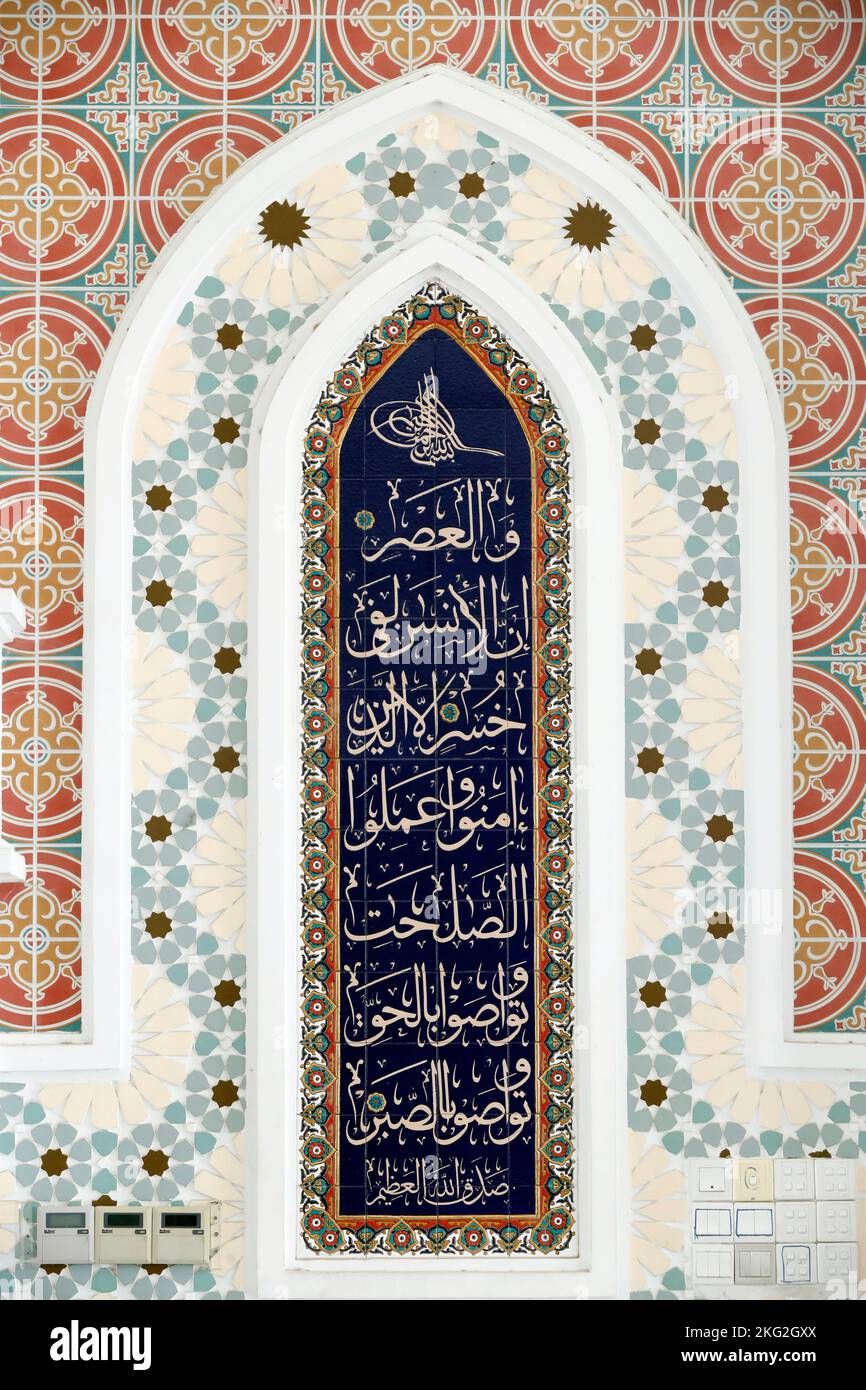 بسم الله الرحمن الرحيم
وَالْعَصْرِ
إِنَّ الْأِنسٰنَ لَفِى
خُسْرٍ إِلَّا الَّذِينَ
اٰمَنُوا وَعَمِلُوا
الصّٰلِحٰتِ
وَتَوَاصَوْا بِالْحَقِّ
وَتَوَاصَوْا بِالصَّبْرِ
صَدَقَ اللّٰهُ الْعَظِيم
alamy
Image ID: 2KG2GXX
www.alamy.com